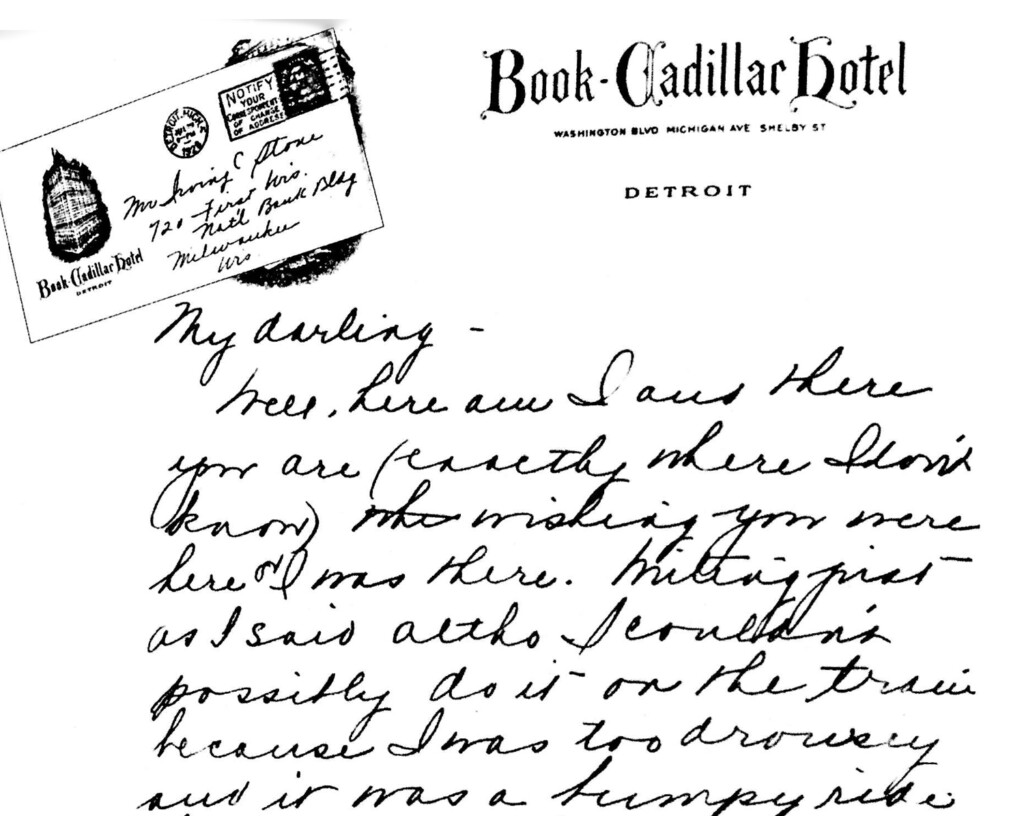 Book-Cadillac Hotel
WASHINGTON BLVD MICHIGAN AVE SHELBY ST
DETROIT
DETROIT, MICH.
1928
NOTIFY
YOUR
CORRESPONDENT
OF CHANGE
OF ADDRESS
Mr Irving C Stone
720 First Wis.
Nat'l Bank Bldg
Milwaukee
Wis
Book-Cadillac Hotel
DETROIT
My darling -
Well, here am I and there
you are (exactly where I don't
know) whe wishing you were
here or I was there. Writing just
as I said altho I couldn't
possibly do it on the train
because I was too drowsey
and it was a bumpy ride.